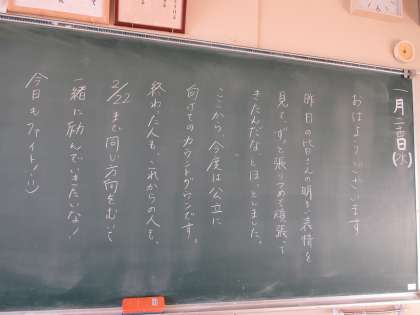 一月二三日(水)
おはようございます
昨日の皆さんの明るい表情を
見て、ずっと張りつめて頑張って
きたんだな、とほっとしました。
ここから、今度は公立に
向けてのカウントダウンです。
終わった人も、これからの人も、
2/22まで同じ方向をむいて
一緒に励んでいきたいな!
今日もファイト!!